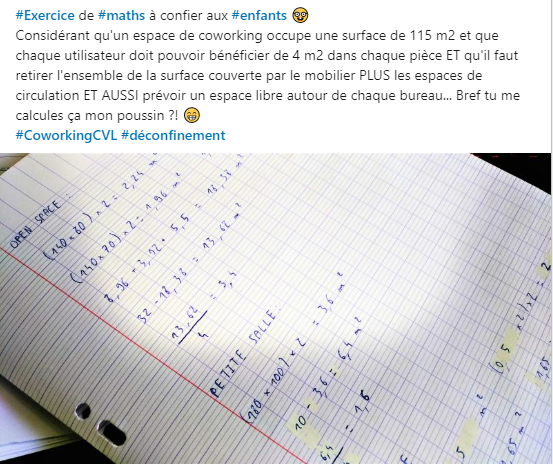 #Exercice de #maths à confier aux #enfants 🤓
Considérant qu'un espace de coworking occupe une surface de 115 m2 et que
chaque utilisateur doit pouvoir bénéficier de 4 m2 dans chaque pièce ET qu'il faut
retirer l'ensemble de la surface couverte par le mobilier PLUS les espaces de
circulation ET AUSSI prévoir un espace libre autour de chaque bureau... Bref tu me
calcules ça mon poussin ?! 🤓
#CoworkingCVL #déconfinement
OPEN SPACE :
(140 x 80) x 2 = 2,24 m²
(140 x 70) x 2 = 1,96 m²
+ 3,92 + 5,5 = 18,38 m²
32 - 18,38 = 13,62 m²
13,62 = 3,4
4
PETITE SALLE
(180 x 100) x 2 = 3,6 m²
10 - 3,6 = 6,4 m²
6,4 = 1,6
(0,5 x 2) x 2 = 2
1,65
m²
65 m²